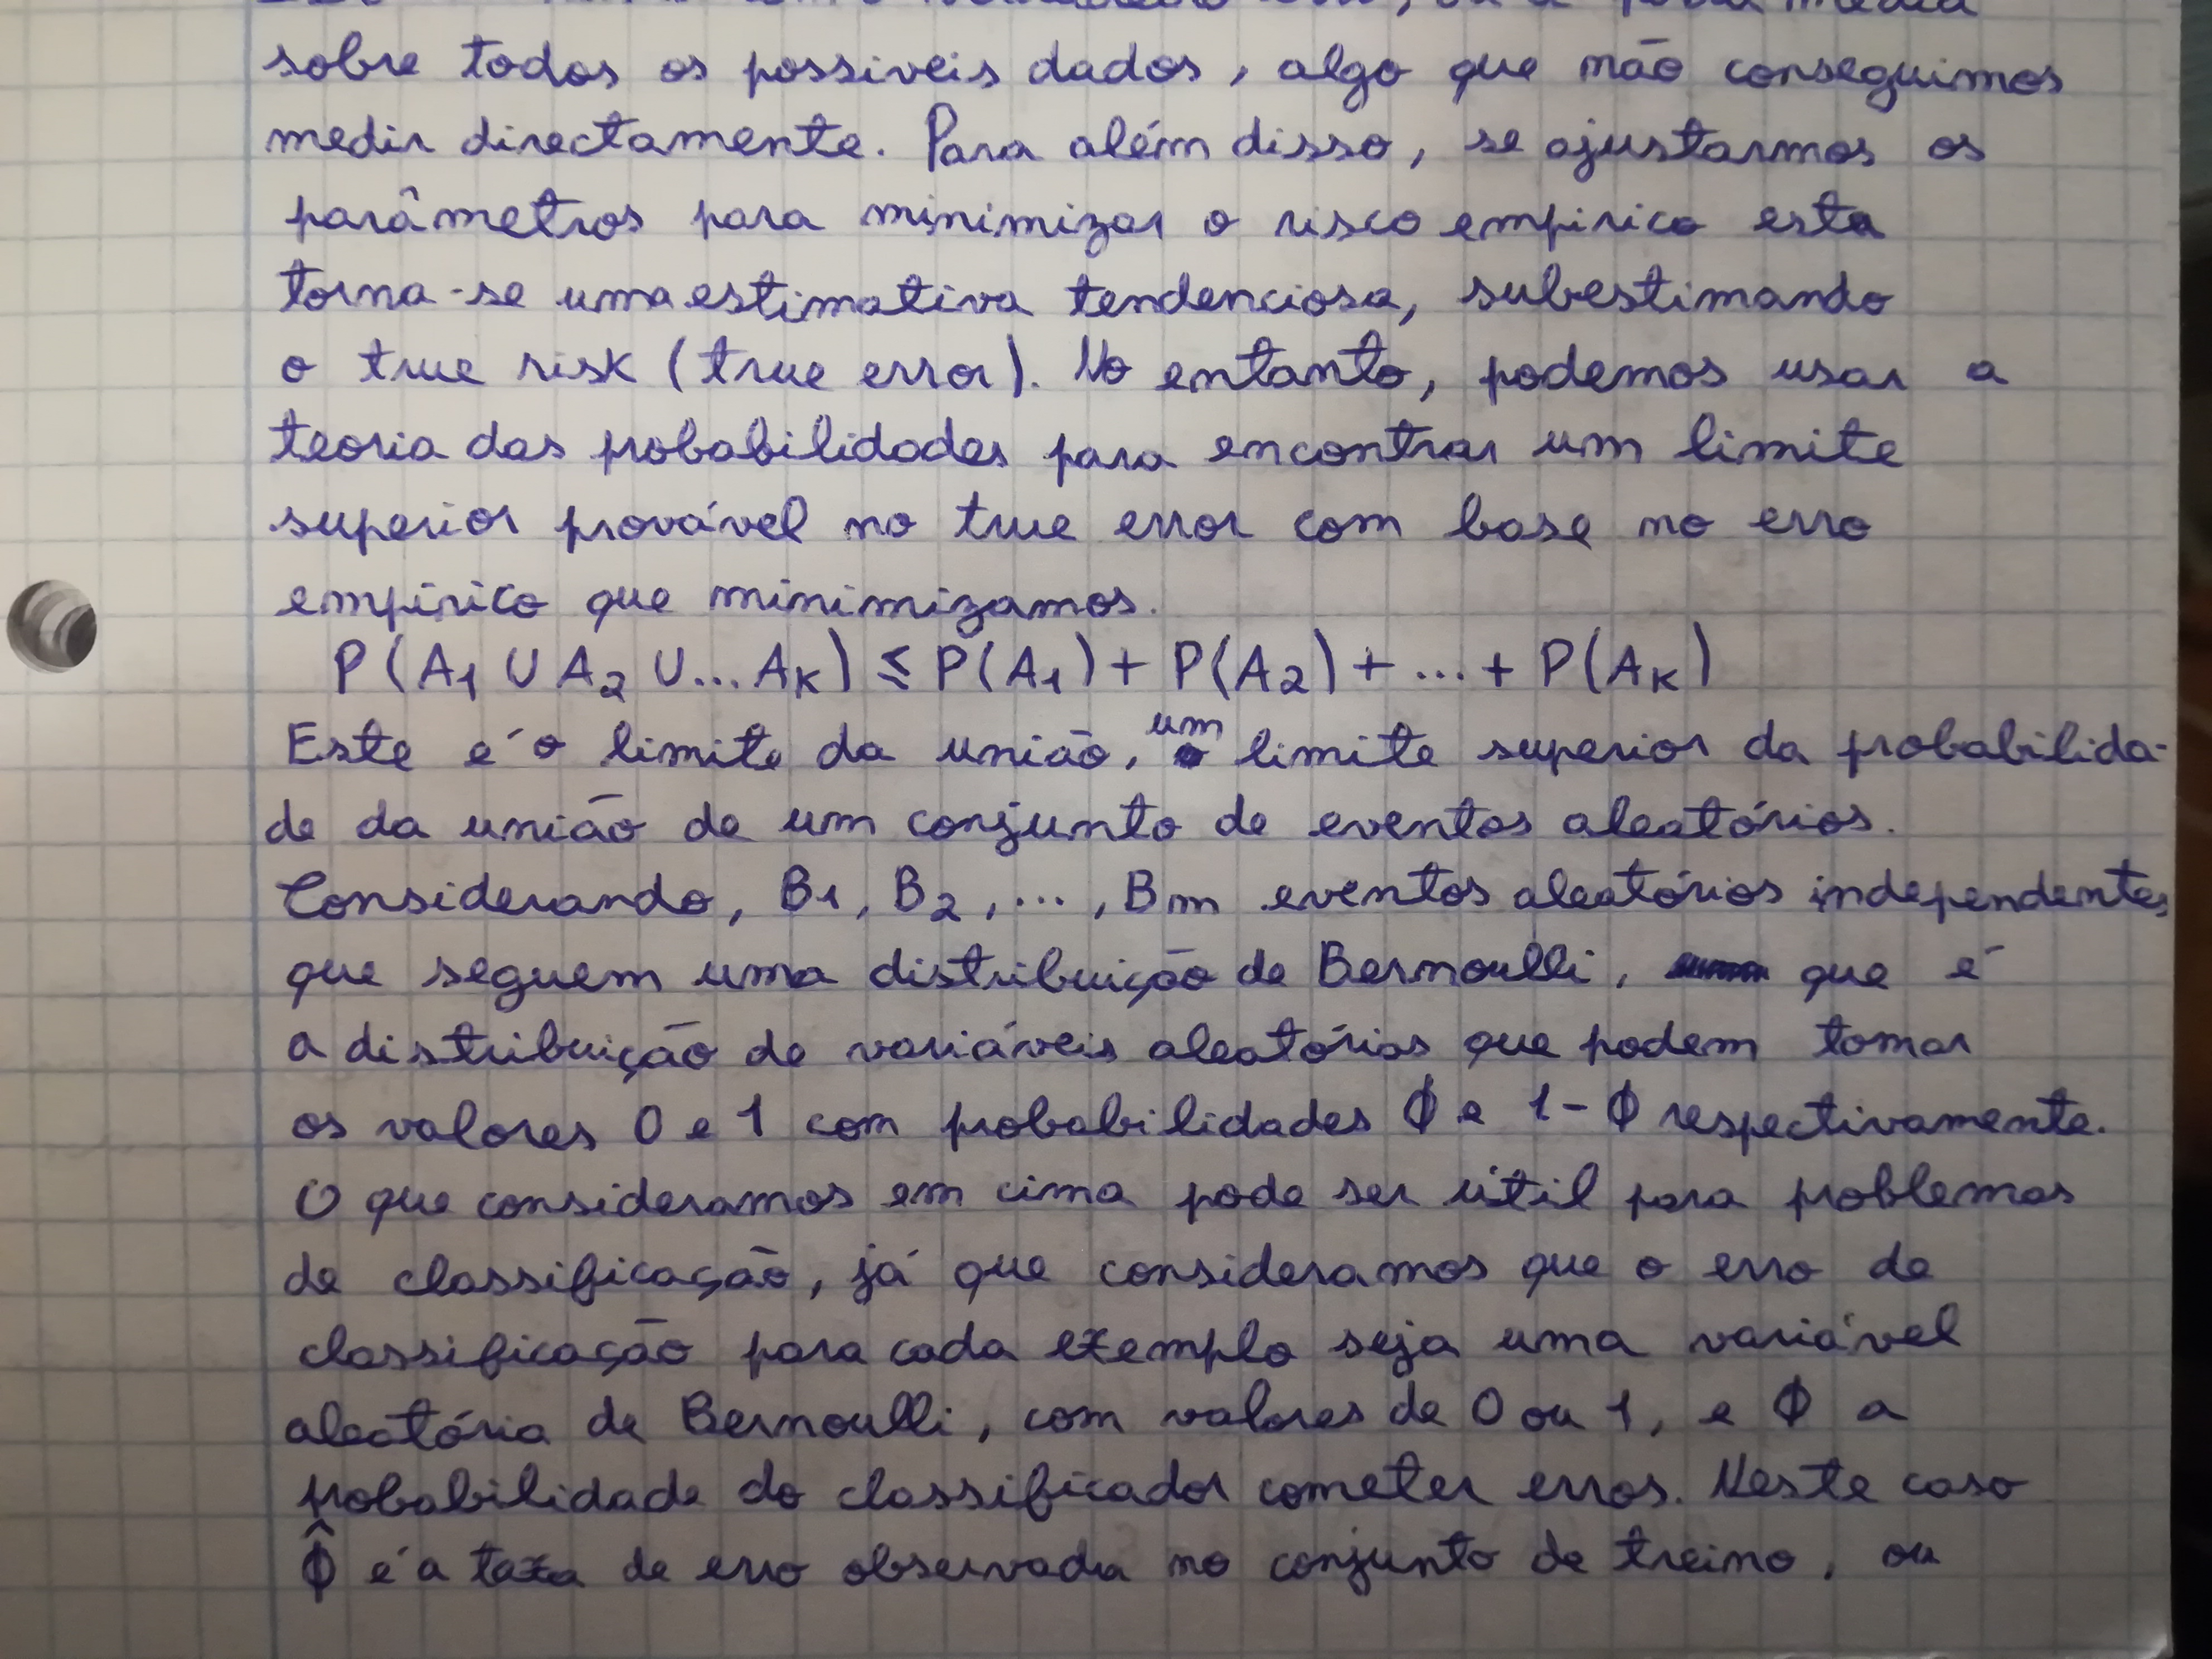 sobre todos os possiveis dados, algo que não conseguimos
medir directamente. Para além disso, se ajustarmos os
parâmetros para minimizar o risco empirico esta
torna-se uma estimativa tendenciosa, subestimando
o true risk (true error). No entanto, podemos usar a
teoria das probabilidades para encontrar um limite
superior provável no true error com base no erro
empirico que minimizamos.
P(A1 ∪ A2 ∪... AK) ≤ P(A1) + P(A2) + ... + P(AK)
Este é o limite da união, um limite superior da probabilida-
de da união de um conjunto de eventos aleatórios.
Considerando, B1, B2, ..., Bm eventos aleatórios independentes
que seguem uma distribuição de Bernoulli, que é
a distribuição de variáveis aleatórias que podem tomar
os valores 0 e 1 com probabilidades ϕ e 1-ϕ respectivamente.
O que consideramos em cima pode ser útil para problemas
de classificação, já que consideramos que o erro de
classificação para cada exemplo seja uma variável
aleatória de Bernoulli, com valores de 0 ou 1, e ϕ a
probabilidade do classificador cometer erros. Neste caso
ϕ̂ é a taxa de erro observada no conjunto de treino, ou